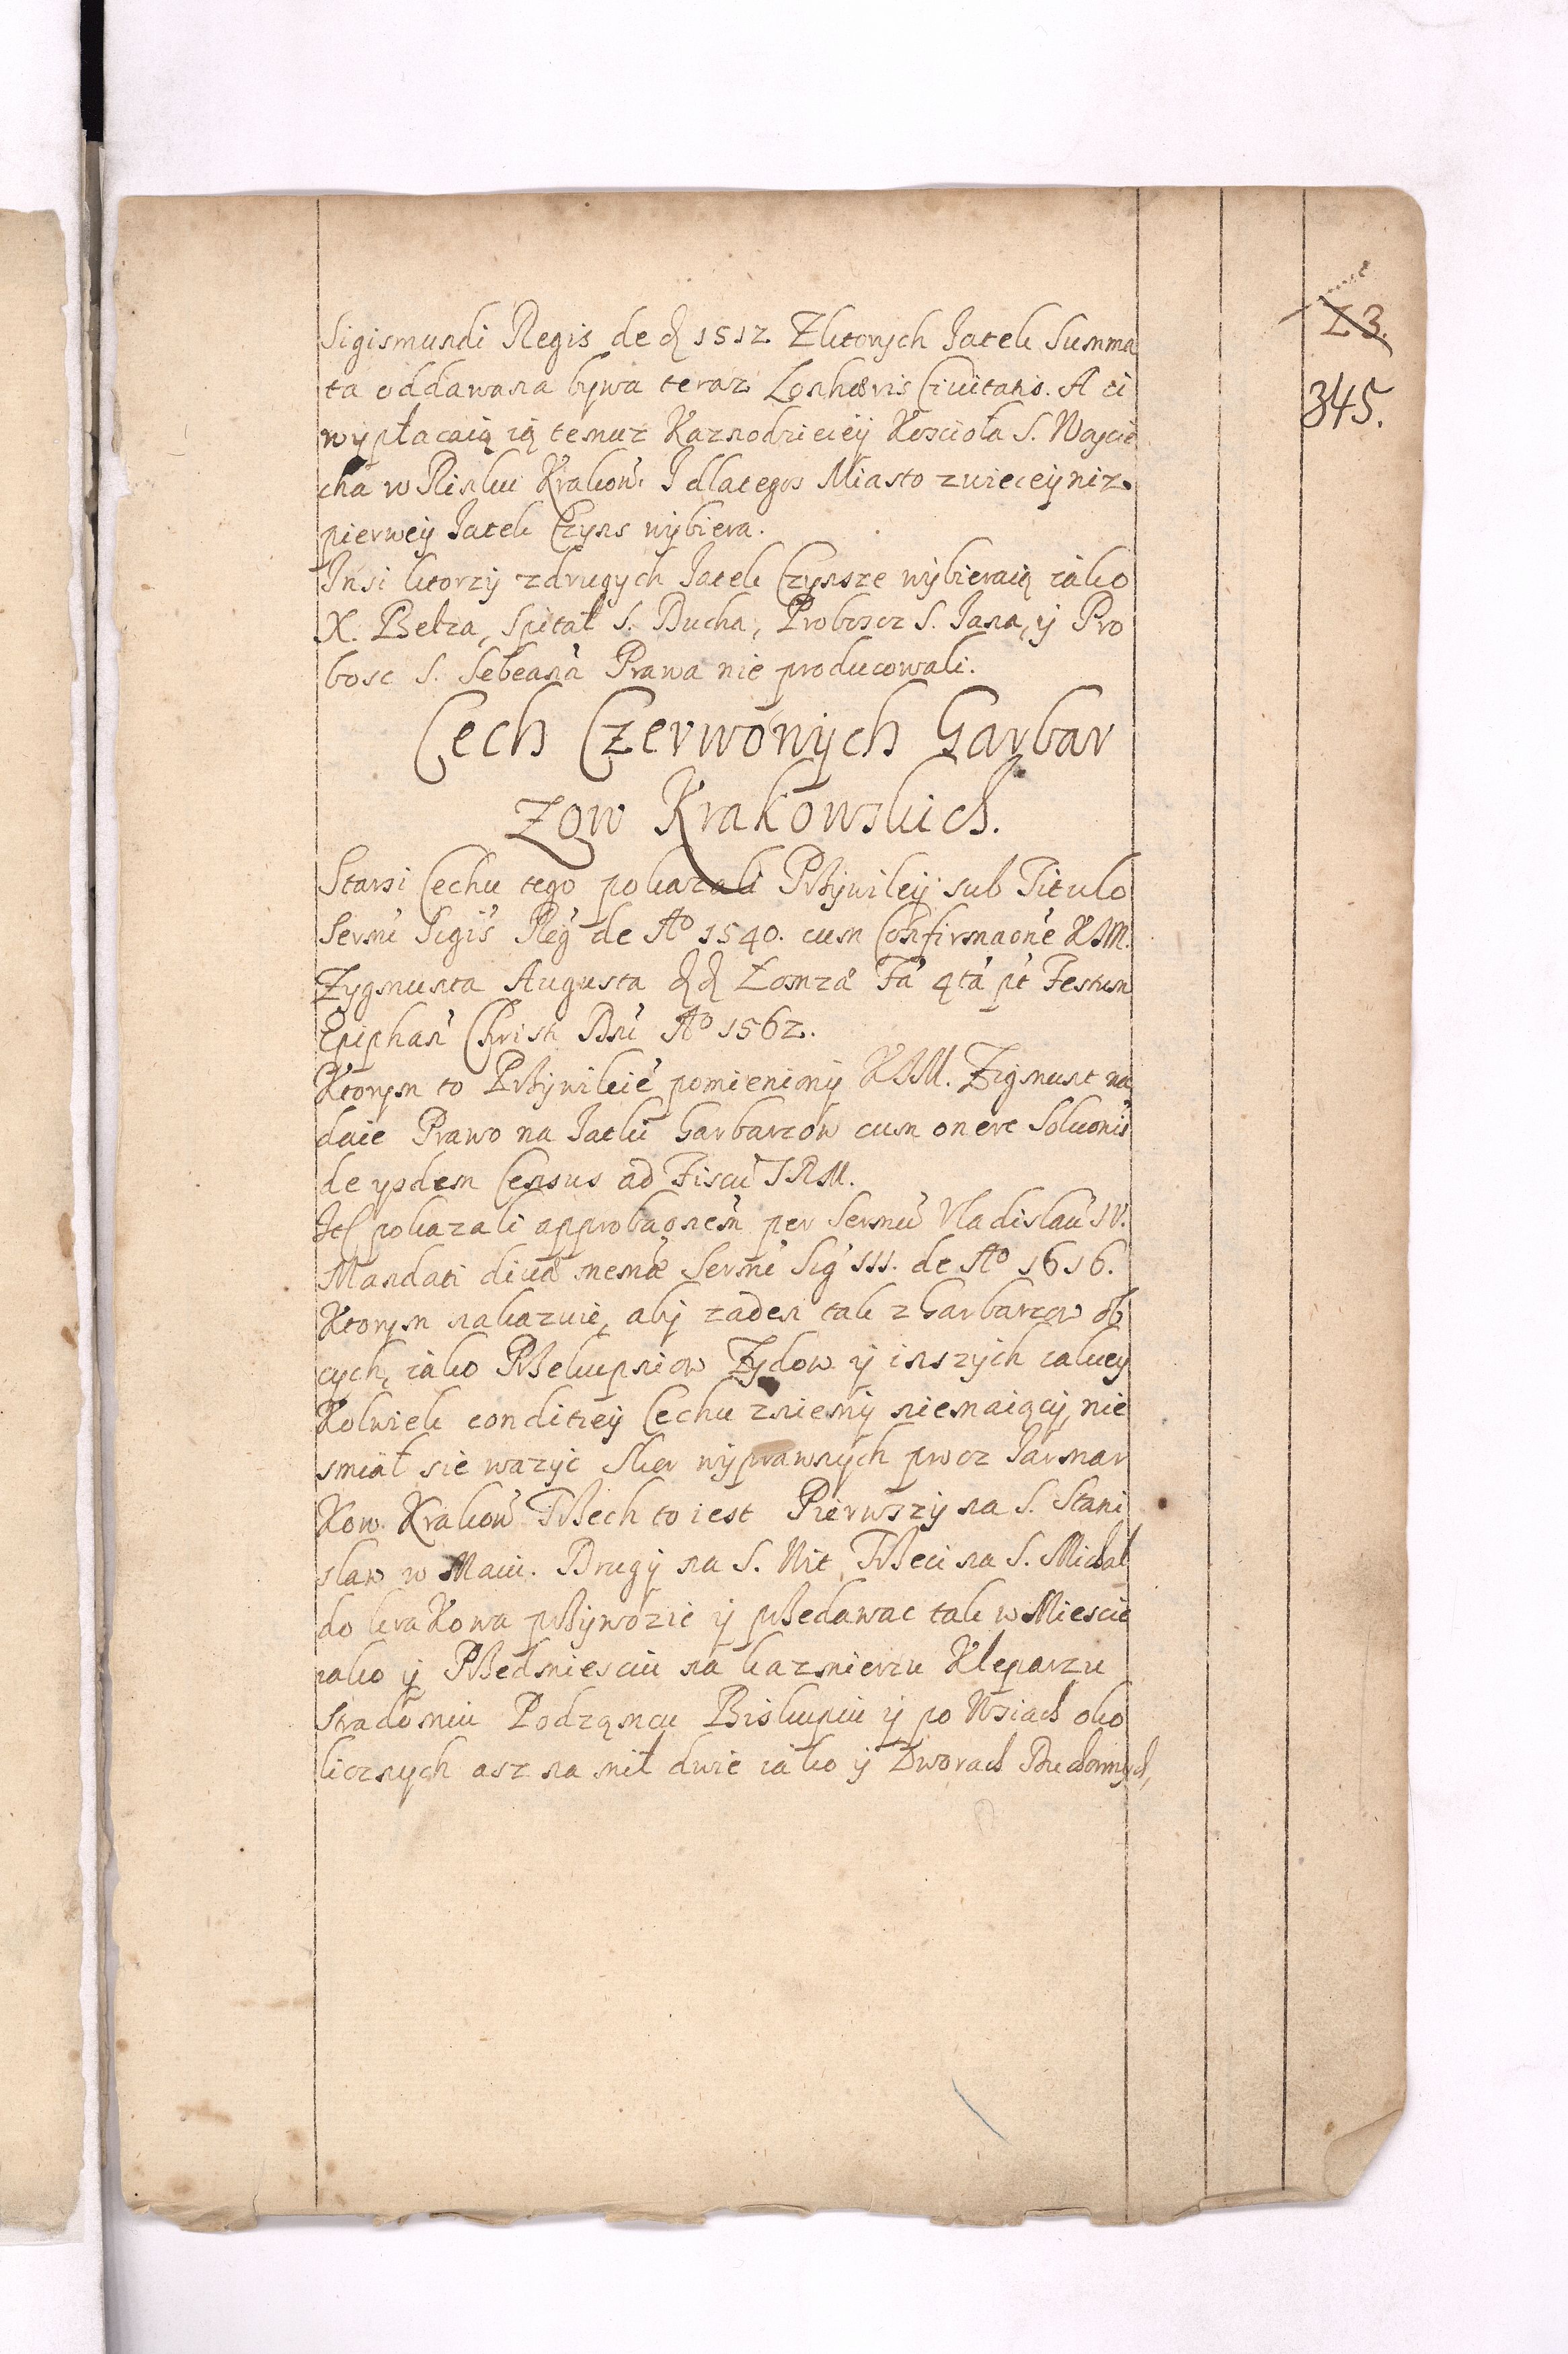 23.
345.
Sigismundi Regis de d 1512 Zktorych Jatek Summa
ta oddawana bywa teraz Lonheris Civitatis. A ci
wypłacaią ią temuz Kaznodzieieÿ Koscioła S. Woycie
cha w Rinku Krakow. I dlategos Miasto zwieceÿ niz
pierweÿ Jatek Czyns wÿbiera.
Insi ktorzÿ zdrugych Jatek Czynsze wÿbieraią iako
X. Betza, Spitał S. Ducha, Proboscz S. Jana, ÿ Pro
bosc S. Sebeana Prawa nie producowali.
Cech Czerwonÿch Garbar
zow Krakowskich.
Starsi Cechu tego pokazali Prziwileÿ sub Titulo
Sermi Sigis Reg de Ao 1540. cum Confirmaone KJM.
Zygmunta Augusta dd Łomza Fa 4ta pt Festum
Epiphan Christi Dni Ao 1562.
Ktorym to Prziwileie pomieniony KJM. Zigmunt na
daie Prawo na Jatki Garbarzow cum onere Soluonis
de ysdem Census ad Fiscu SRM.
Jt pokazali approbaonem per Sermu Vladislau IV.
Mandati diva mema Sermi Sig III. de Ao 1616.
Ktorym nakazuie, abÿ zaden tak z Garbarzow ob
cych, iako Przekupniow Zydow ÿ inszÿch iakieÿ
Kolwiek conditieÿ Cechu zniemÿ niemaiącÿ, nie
smiał sie wazÿc Skor wÿprawnÿch procz Jarmar
Kow Krakow Trzech to iest Pierwszÿ na S. Stani
slaw w Maiu. Drugÿ na S. Wit, Trzeci na S. Michał
do kraKowa przÿwozic ÿ przedawac tak w Miescie
iako ÿ Przedmiesciu na kazmierzu Kleparzu
Stradomiu Podzamcu Biskupiu ÿ po Wsiach oko
licznych asz na mil dwie iako ÿ Dworach Duchownych,